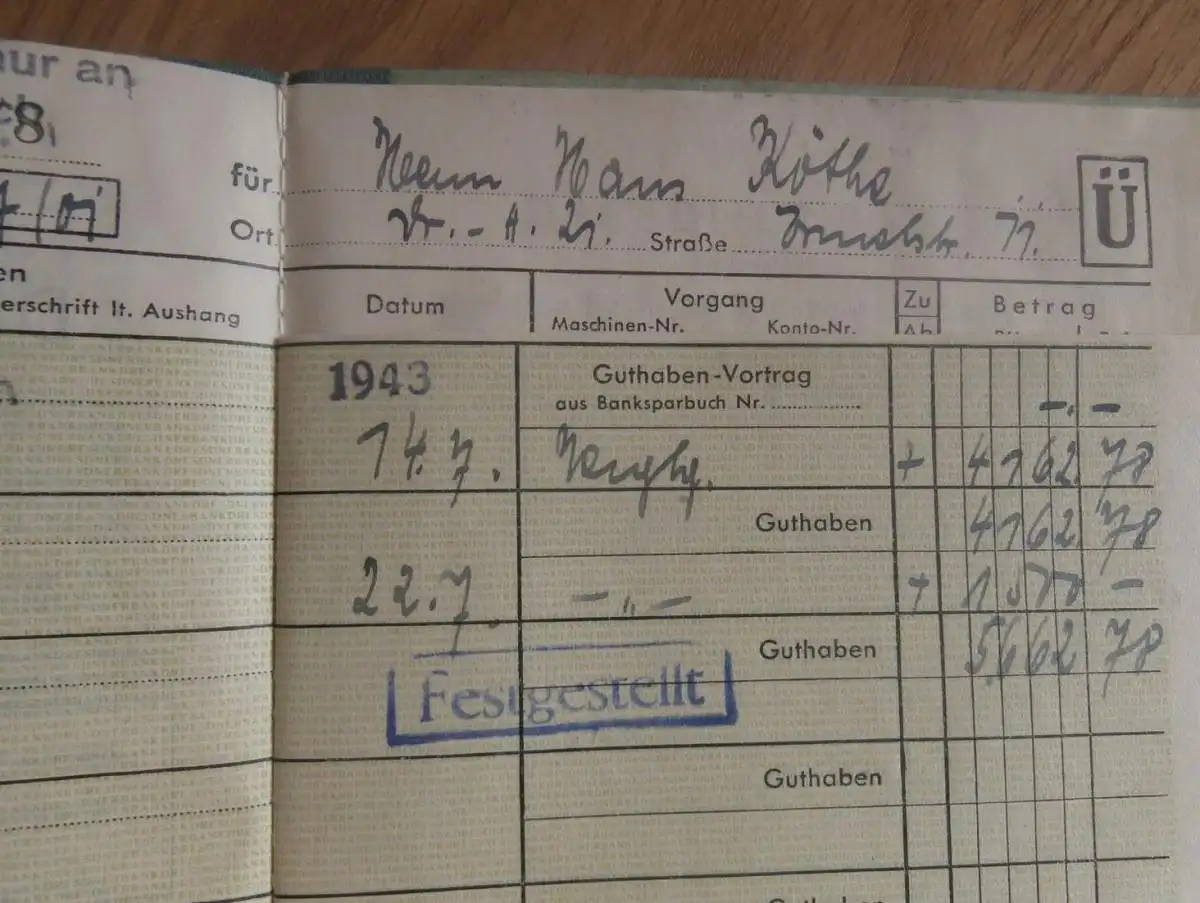 nur an
8
für Herrn Hans Köthe
Ü
Ort Dr.-A. 21. Straße 71.
en
erschrift lt. Aushang
Datum Vorgang Zu Betrag
Maschinen-Nr. Konto-Nr. Ab
1943 Guthaben-Vortrag
aus Banksparbuch Nr. -.-
14.7. + 4162 78
Guthaben 4162 78
22.7. -"- + -
Guthaben 5662 78
Festgestellt
Guthaben
Guthaben